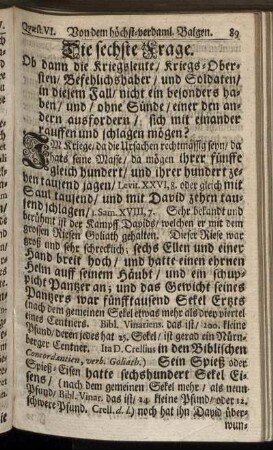 Quæst. VI. Von dem höchst-verdaml. Balgen. 89
Die sechste Frage.
Ob dann die Kriegsleute/ Kriegs-Ober-
sten/ Befehlichshaber/ und Soldaten/ in
diesem Fall/ nicht ein besonders ha-
ben/ und/ ohne Sünde/ einer den an-
dern ausfordern/ sich mit einander
rauffen und schlagen mögen?
IM Kriege/ da die Ursachen rechtmässig seyn/ da
hats seine Masse/ da mögen ihrer fünffe
gleich hundert/ und ihrer hundert ze-
hen tausend jagen/ Levit. XXVI, 8. oder gleich mit
Saul tausend/ und mit David zehen tau-
send jagen/ 1. Sam. XVIII, 7. Sehr bekandt und
berühmt ist der Kampff Davids/ welchen er mit dem
grossen Riesen Goliath gehalten. Dieser Riese war
groß und sehr schrecklich; sechs Ellen und einer
Hand breit hoch/ und hatte einen ehrnen
Helm auff seinem Häubt/ und ein schup-
picht Pantzer an; und das Gewicht seines
Pantzers war fünfftausend Sekel Ertzts
(nach dem gemeinen Sekel etwas mehr als drey viertel
eines Centners. Bibl. Vinariens. das ist/ 200. kleine
Pfund/ deren jedes hat 25. Sekel/ ist gerad ein Nürn-
berger Centner. Ita D. Crellius in den Biblischen
Concordantien, verb. Goliath.) Sein Spieß oder
Spieß-Eisen hatte sechshundert Sekel Ei-
sens/ (nach dem gemeinen Sekel mehr/ als neun
Pfund/ Bibl. Vinar. das ist/ 24. kleine Pfund/ oder 12.
schwere Pfund. Crell. d.) noch hat ihn David über-
wun-